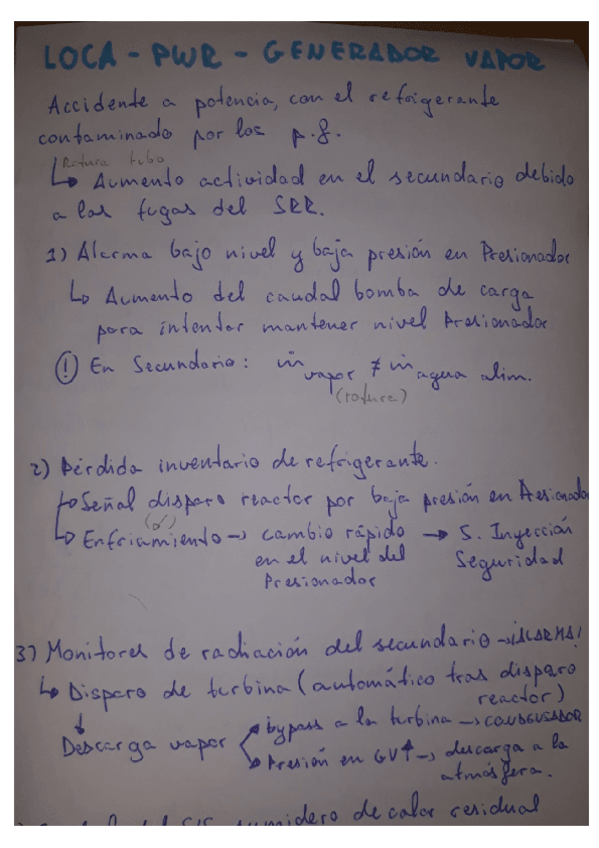 LOCA - PWR - GENERADOR VAPOR
Accidente a potencia, con el refrigerante
contaminado por los p.f.
Rotura tubo
↳ Aumento actividad en el secundario debido
a las fugas del SRR.
1) Alarma bajo nivel y baja presión en Presionador
↳ Aumento del caudal bomba de carga
para intentar mantener nivel Presionador
! En Secundario: ṁ vapor ≠ ṁ agua alim.
(rotura)
2) Pérdida inventario de refrigerante.
↳ Señal disparo reactor por baja presión en Presionador
(o)
↳ Enfriamiento → cambio rápido → S. Inyección
en el nivel del Seguridad
Presionador
3) Monitores de radiación del secundario → ¡ALARMA!
↳ Disparo de turbina (automático tras disparo
reactor)
↓
Descarga vapor bypass a la turbina → CONDENSADOR
Presión en GV↑ → descarga a la
atmósfera.
sumidero de calor residual